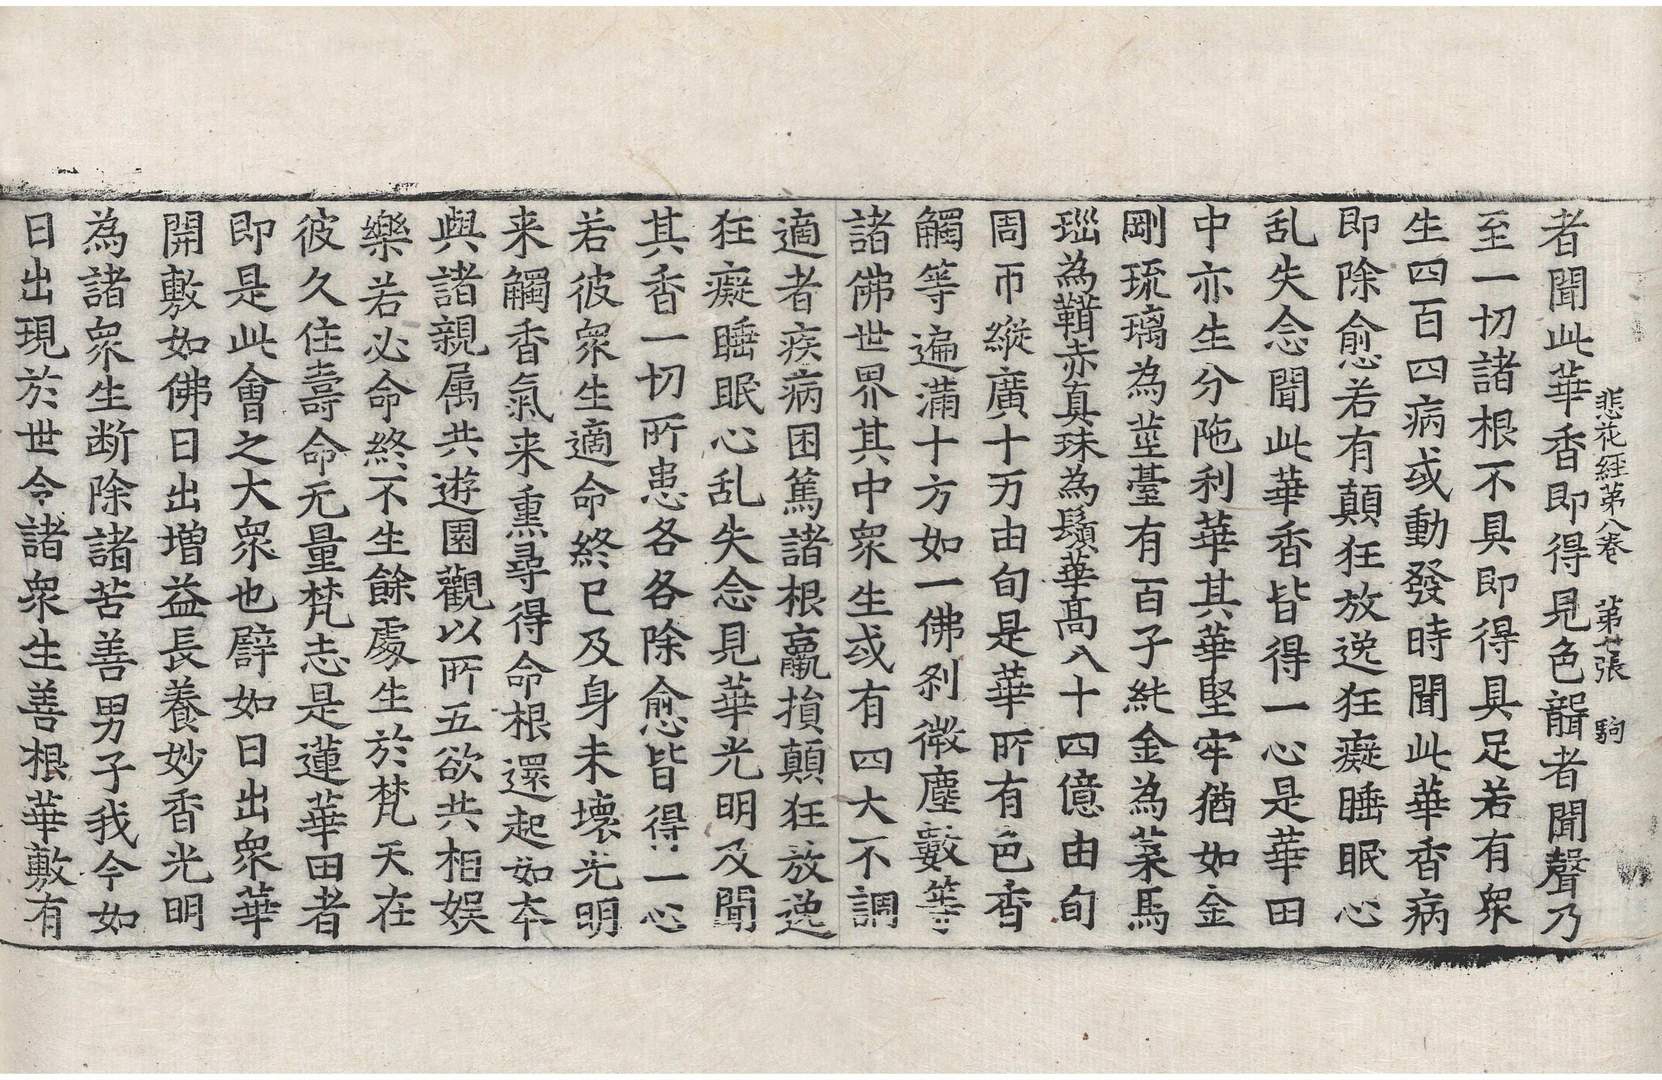 悲花經苐八卷 苐七張 駒
者聞此華香即得見色聾者聞聲乃
至一切諸根不具即得具足若有衆
生四百四病或動發時聞此華香病
即除愈若有顛狂放逸狂癡睡眠心
乱失念聞此華香皆得一心是華田
中亦生分陁利華其華堅牢猶如金
剛琉璃為莖臺有百子純金為葉馬
瑙為鞾赤真珠為鬚華髙八十四億由旬
周帀縱廣十万由旬是華所有色香
觸等遍滿十方如一佛刹微塵數等
諸佛世界其中衆生或有四大不調
適者疾病困篤諸根羸損顛狂放逸
狂癡睡眠心乱失念見華光明及聞
其香一切所患各各除愈皆得一心
若彼衆生適命終已及身未壞光明
来觸香氣来熏尋得命根還起如本
與諸親属共遊園觀以所五欲共相娛
樂若必命終不生餘處生於梵天在
彼久住壽命无量梵志是蓮華田者
即是此會之大衆也譬如日出衆華
開敷如佛日出増益長養妙香光明
為諸衆生断除諸苦善男子我今如
日出現於世令諸衆生善根華敷有